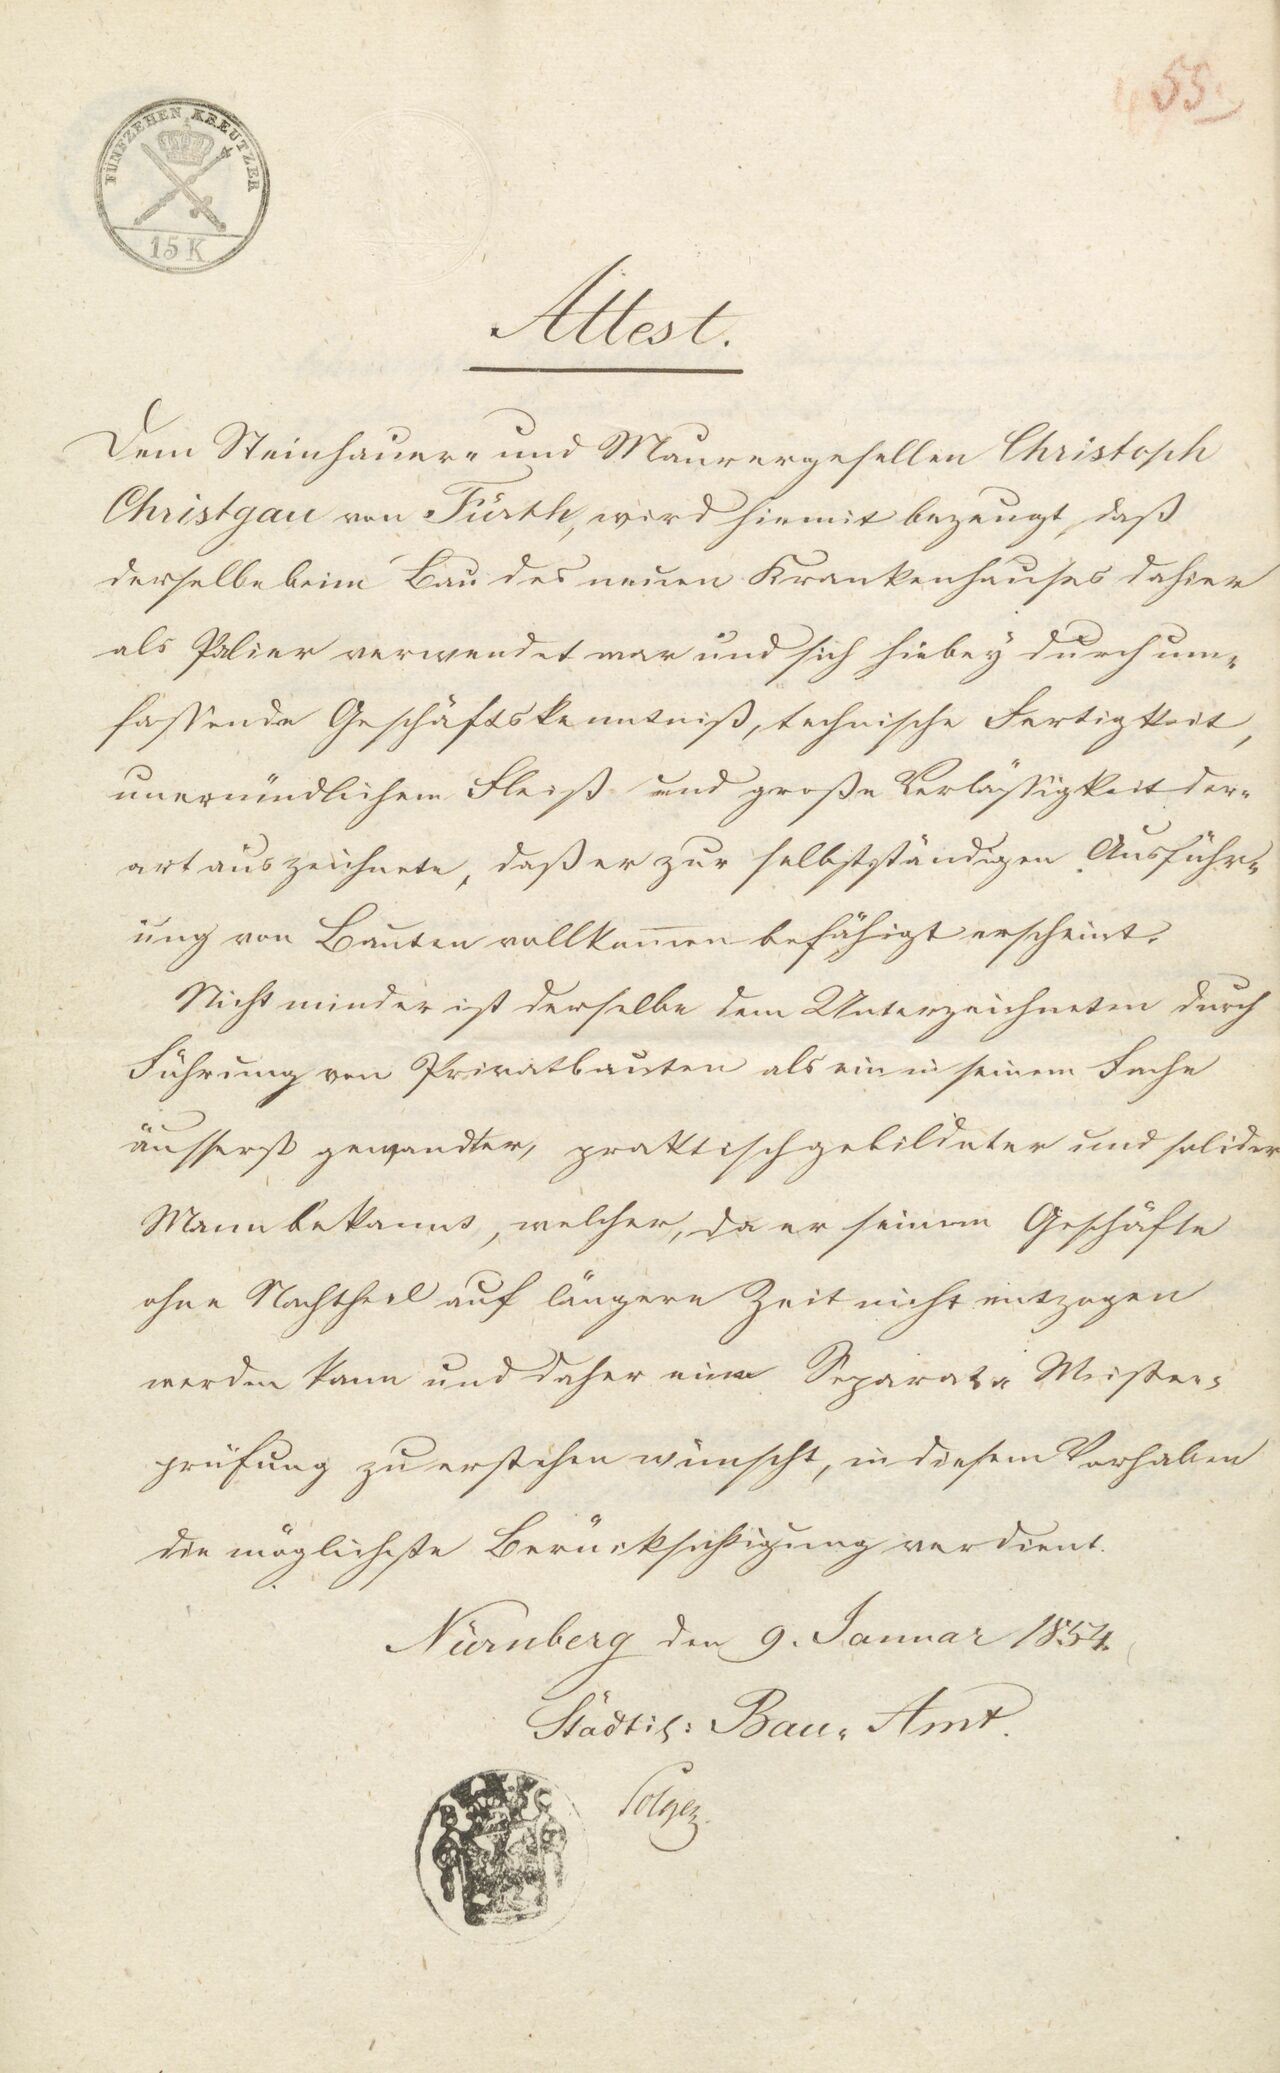 55.
FÜNFZEHEN KREUTZER
15 K
Attest.
Dem Steinhauer- und Maurergesellen Christoph
Christgau von Fürth, wird hiemit bezeugt, daß
derselbe beim Bau des neuen Krankenhauses dahier
als Palier verwendet war und sich hiebey durch um-
fassende Geschäftskenntniß, technische Fertigkeit,
unermüdlichem Fleiß und große Verläßigkeit der-
art auszeichnete, daß er zur selbstständigen Ausführ-
ung von Bauten vollkom̅en befähigt erscheint.
Nicht minder ist derselbe dem Unterzeichneten durch
Führung von Privatbauten als ein in seinem Fache
äusserst gewandter, praktisch gebildeter und solider
Mann bekannt, welcher, da er seinem Geschäfte
ohne Nachtheil auf längere Zeit nicht entzogen
werden kann und daher eine Separat-Meister-
prüfung zu erstehen wünscht, in diesem Vorhaben
die möglichste Berücksichtigung verdient.
Nürnberg den 9. Januar 1854.
Städtis: Bau-Amt.
Solger